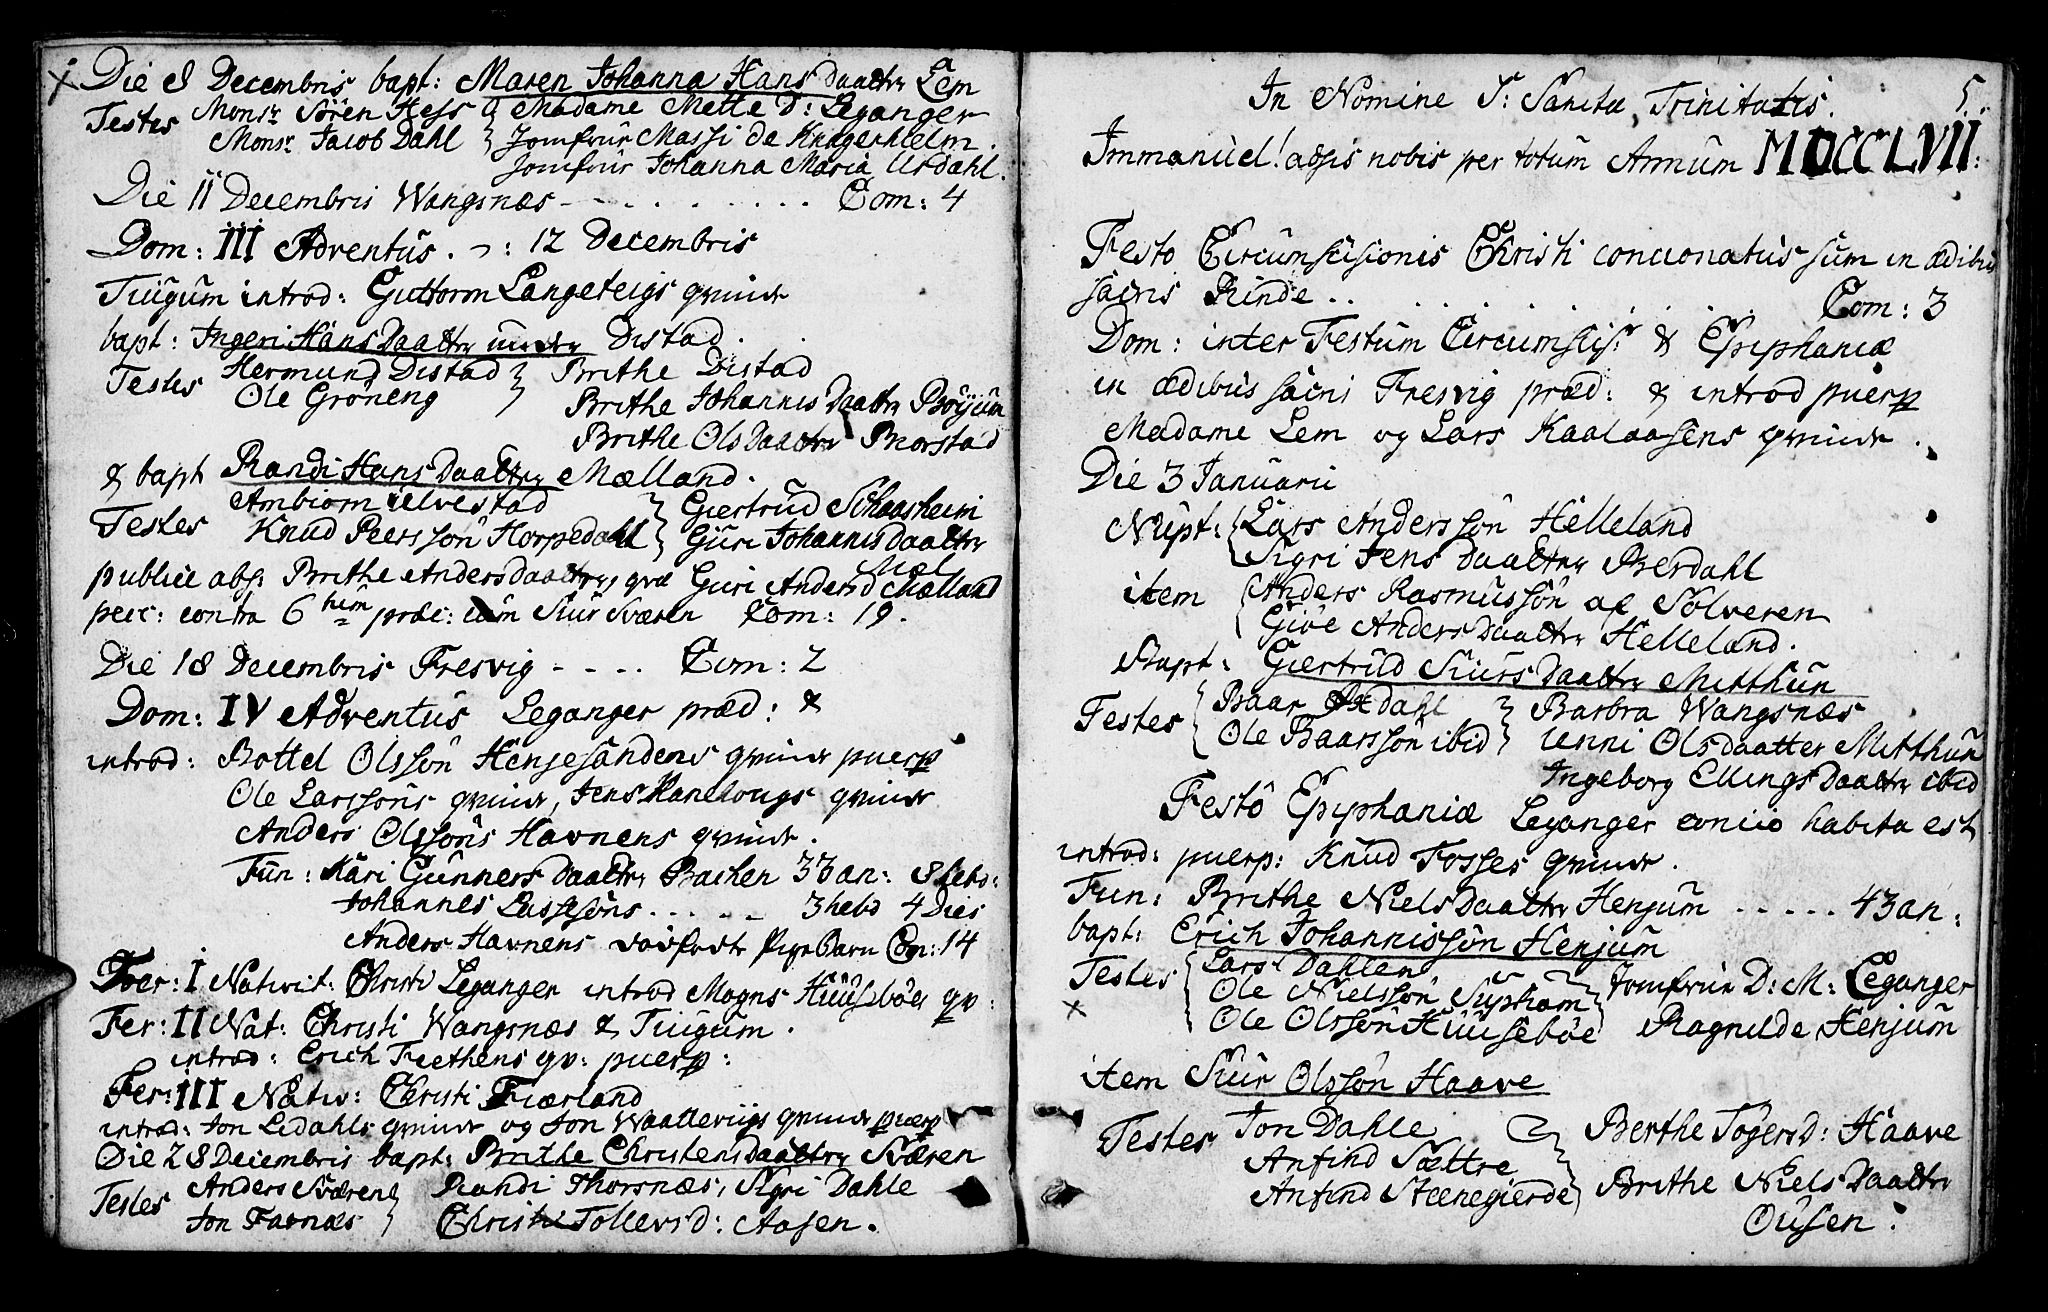 Die 8 Decembris bapt: Maren Johanna Hans Daatter Lem
Testes Monsr Sören Hess } Madame Mette D: Leganger
Monsr Jacob Dahl } Jomfrur Massi de Knagenhielm.
Jomfrur Johanna Maria Urdahl.
Die 11 Decembris Wangsnæs - - . . . . . . . . Com: 4
Dom: III Adventus. -: 12 Decembris
Tiugum introd: Guttorm Langeteigs qvinde
bapt: Ingeri Hans Daatter Distad.
Testes Hermund Distad } Brithe Distad
Ole Gröneng } Brithe Johannis Daatter Böyum
Brithe Ols Daatter Norstad
& bapt Randi Hans Daatter Mælland.
Testes Ambiorn Ulvestad } Giertrud Schaasheim
Knud Peersson Horpedahl } Guri Johannis Daatter
Mæl
publice abs: Brithe Anders Daatter, qvæ Guri Andersd Mælland
pecc: contra 6 tum præc: cum Siur Sværen Com: 19.
Die 18 Decembris Fresvig - - - . Com: 2
Dom: IV Adventus Leganger præd: &
introd: Bottel Olssön Henjesandens qvinde puerp
Ole Larssöns qvinde, Jens Ranelougs qvinde
Anders Olssöns Havnens qvinde.
Fun: Kari Gunners Daatter Bachen 33 an: 8 hebd:
Johannes Lassesöns. . . . . 3 hebd 4 Dies
Anders Havnens Pige Barn Com: 14
Fer: I Nativit: Christi Leganger introd Mogns Huuseböes qv:
Fer: II Nat: Christi Wangsnæs & Tiugum.
introd: Erich Freethens qv: puerp:
Fer: III Nativ: Christi Fiærland
introd: Jon Lidahls qvinde og Jon Waatteviigs qvinde puerp
Die 28 Decembris bapt: Brithe Christens Daatter Sværen
Testes Anders Sværen } Randi Thorsnæs, Sigri Dahle
Jon Farnæs } Christi Tollevsd: Aasen.
5.
In Nomine S: Sanctæ Trinitatis.
Immanuel! adsis nobis per totum Annum MDCCLVII:
Festo Circumscisionis Christi concionatus sum in ædibus
sacris Rinde . . . . . . . . . Com: 3
Dom: inter Festum Circumscis: & Epiphaniæ
in ædibus sacris Fresvig præd: & introd puerp
Madame Lem og Lars Kaalaasens qvinde.
Die 3 Januarii
Nupt: { Lars Anderssön Helleland
Sigri Jens Daatter Berdahl
item { Anders Rasmussön af Solveren
Giöe Anders Daatter Helleland.
Bapt: Giertrud Siurs Daatter Mitthun
Testes { Baar Dahl } Barbra Wangsnæs
Ole Baarssön ibid } Unni Olsdaatter Mitthun
Ingeborg Ellings Daatter ibid
Festo Epiphaniæ Leganger concio habita est
introd: puerp: Knud Fosses qvinde.
Fun: Brithe Niels Daatter Henjum . . . . . 43 an:
bapt: Erich Johannissön Henjum
Testes { Lars Dahlen } Jomfrur D: M: Leganger
Ole Nielssön Supham
Ole Olssön Huusebøe } Ragnilde Henjum
item Siur Olssön Haave
Testes Jon Dahle } Berthe Togersd: Haave
Anfind Sættre
Anfind Steenegierde } Brithe Niels Daatter
Ousen.